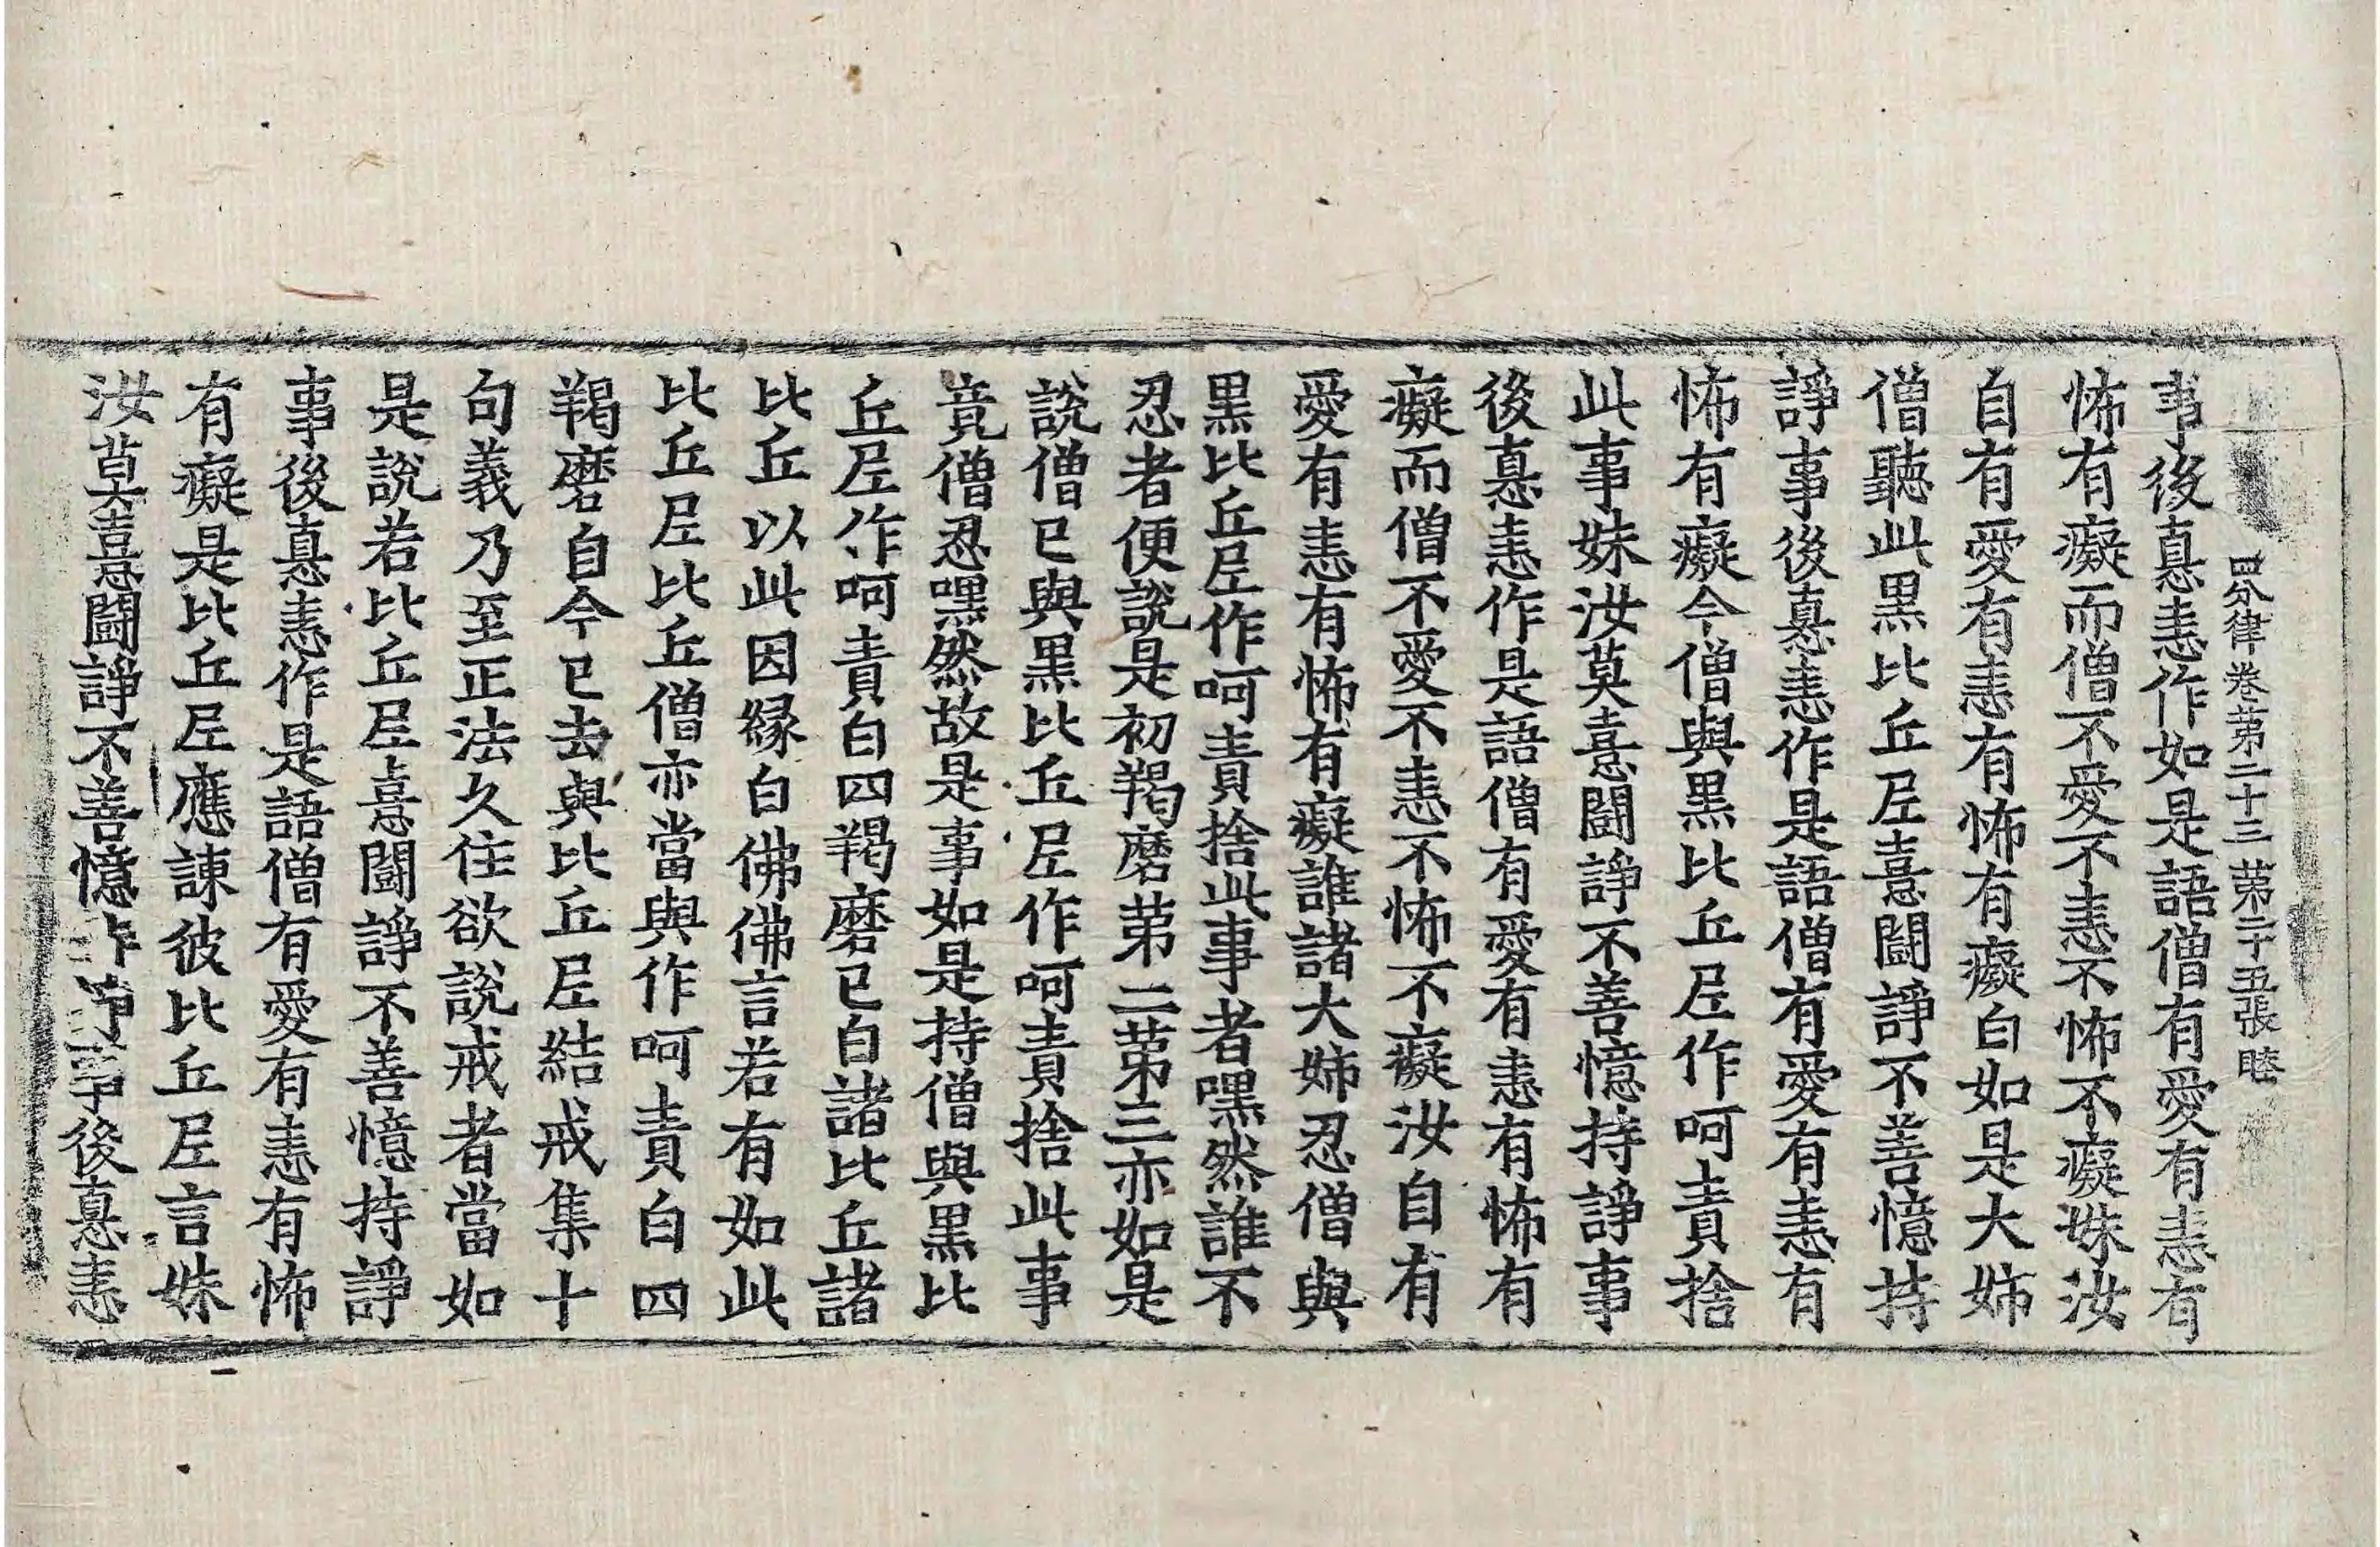 四分律卷第二十三 第二十五張 睦
事後恚恚作如是語僧有愛有恚有
怖有癡而僧不愛不恚不怖不癡妹汝
自有愛有恚有怖有癡白如是大姊
僧聽此黑比丘尼憙鬪諍不善憶持
諍事後恚恚作是語僧有愛有恚有
怖有癡今僧與黑比丘尼作呵責捨
此事妹汝莫憙鬪諍不善憶持諍事
後恚恚作是語僧有愛有恚有怖有
癡而僧不愛不恚不怖不癡汝自有
愛有恚有怖有癡誰諸大姊忍僧與
黑比丘尼作呵責捨此事者嘿然誰不
忍者便說是初羯磨第二第三亦如是
說僧已與黑比丘尼作呵責捨此事
竟僧忍嘿然故是事如是持僧與黑比
丘尼作呵責白四羯磨已白諸比丘諸
比丘以此因緣白佛佛言若有如此
比丘尼比丘僧亦當與作呵責白四
羯磨自今已去與比丘尼結戒集十
句義乃至正法久住欲說戒者當如
是說若比丘尼憙鬪諍不善憶持諍
事後恚恚作是語僧有愛有恚有怖
有癡是比丘尼應諫彼比丘尼言妹
汝莫憙鬪諍不善憶事後恚恚